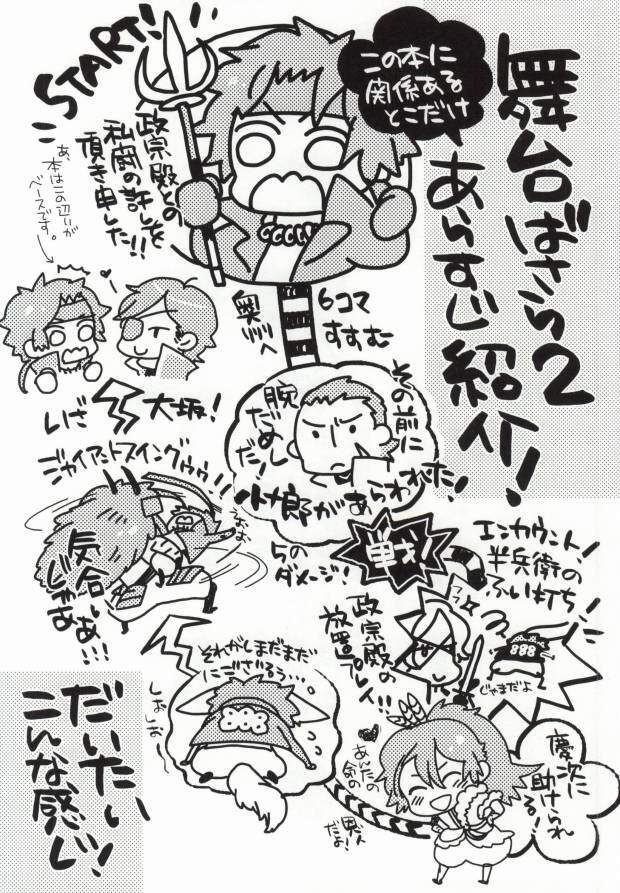 舞台ばさら2
あらすじ紹介!
この本に
関係ある
とこだけ
START!
政宗殿との
私闘の許しを
頂き申した!!
あ、
本はこの辺りが
ベースです。
6コマ
すすむ
奥州へ
その前に
腕
だめし
だ!
小十郎があらわれた!
いざ
大坂!
ジャイアントスイングゥゥ!!
気合いじゃあ
あ!!!
らのダメージ!
戦!
エンカウント!
半兵衛の
ふい打ち!
政宗殿の
放置プレイ!!
888
じゃまだよ
それがしまだまだ
にござるぅ…
しお
しお
慶次に
助けられ
る!
あんたの
だよ!
だいたい
こんな感じ!